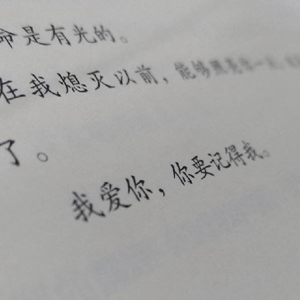 命是有光的。
在我熄灭以前，能够照亮你一点，
了。
我爱你，你要记得我。